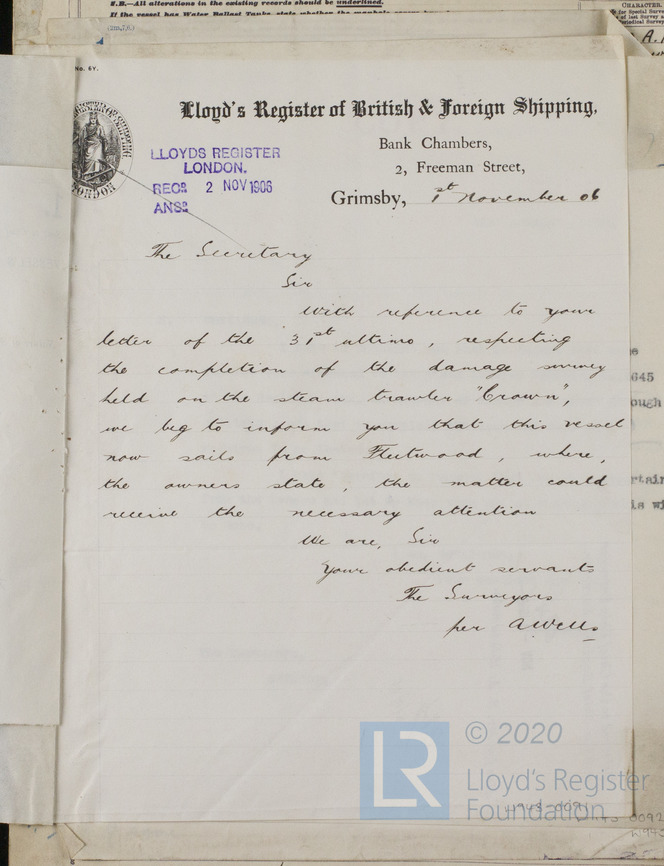 N.B.—All alterations in the existing records should be underlined.
If the vessel has Water Ballast Tanks, state whether the
CHARACTER.
for Special Surve
of last Survey
Periodical Survey
No. 6Y.
Lloyd's Register of British & Foreign Shipping,
Bank Chambers,
2, Freeman Street,
Grimsby, 1st November 06
LLOYDS REGISTER
LONDON.
RECD. 2 NOV 1906
ANSD.
LONDON
The Secretary
Sir
With reference to your
letter of the 31st ultimo, respecting
the completion of the damage survey
held on the steam trawler "Crown",
we beg to inform you that this vessel
now sails from Fleetwood, where,
the owners state, the matter could
receive the necessary attention
We are, Sir
Your obedient servants
The Surveyors
per A Wells
645
ough
rtain
is wi
LR
© 2020
Lloyd's Register
Foundation